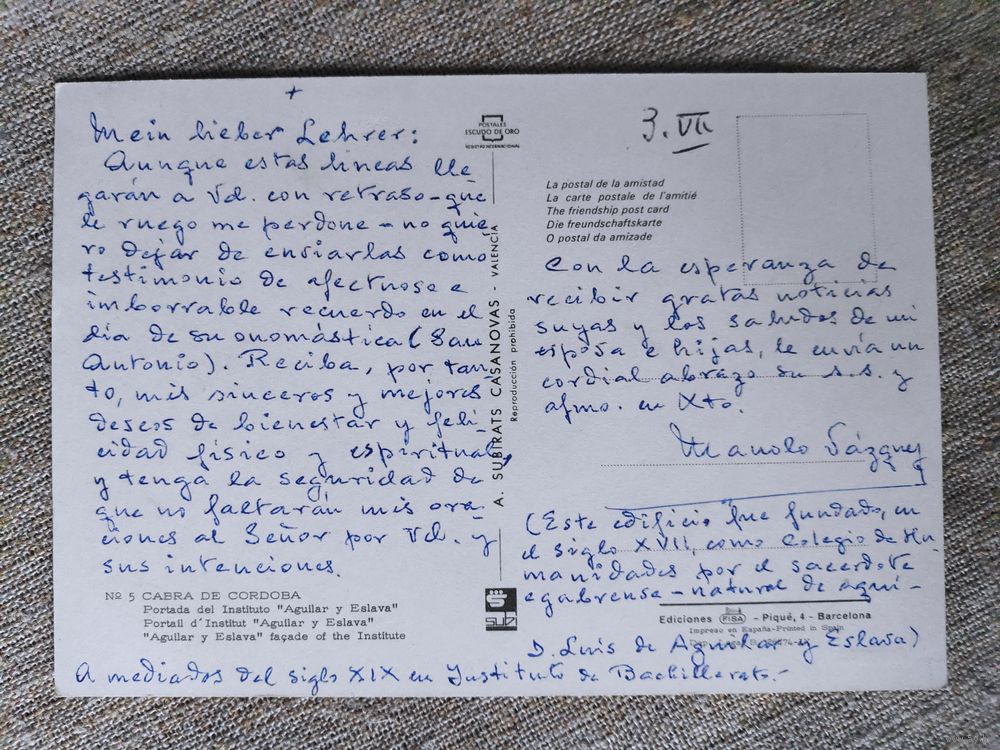 +
Mein lieber Lehrer:
Aunque estas líneas lle
garán a Vd. con retraso-que
le ruego me perdone - no quie
ro dejar de enviarlas como
testimonio de afectuoso e
imborrable recuerdo en el
día de su onomástica (San
Antonio). Reciba, por tan-
to, mis sinceros y mejores
deseos de bienestar y feli-
cidad físico y espiritual,
y tenga la seguridad de
que no faltarán mis ora-
ciones al Señor por Vd. y
sus intenciones.
Nº 5 CABRA DE CORDOBA
Portada del Instituto "Aguilar y Eslava"
Portail d´Institut "Aguilar y Eslava"
"Aguilar y Eslava" façade of the Institute
POSTALES
ESCUDO DE ORO
REGISTRO INTERNACIONAL
A. SUBIRATS CASANOVAS - VALENCIA
Reproducción prohibida
SUB
3. VII
La postal de la amistad
La carte postale de l'amitié
The friendship post card
Die freundschaftskarte
O postal da amizade
Con la esperanza de
recibir gratas noticias
suyas y los saludos de mi
esposa e hijas, le envía un
cordial abrazo su s.s. y
afmo. en Xto.
Manolo Vázquez
(Este edificio fue fundado, en
el siglo XVII, como Colegio de Hu-
manidades por el sacerdote
egabrense - natural de aquí -
Ediciones FISA - Piqué, 4 - Barcelona
Impreso en España-Printed in Spain
D. Luis de Aguilar y Eslava)
A mediados del siglo XIX en Instituto de Bachillerato.-